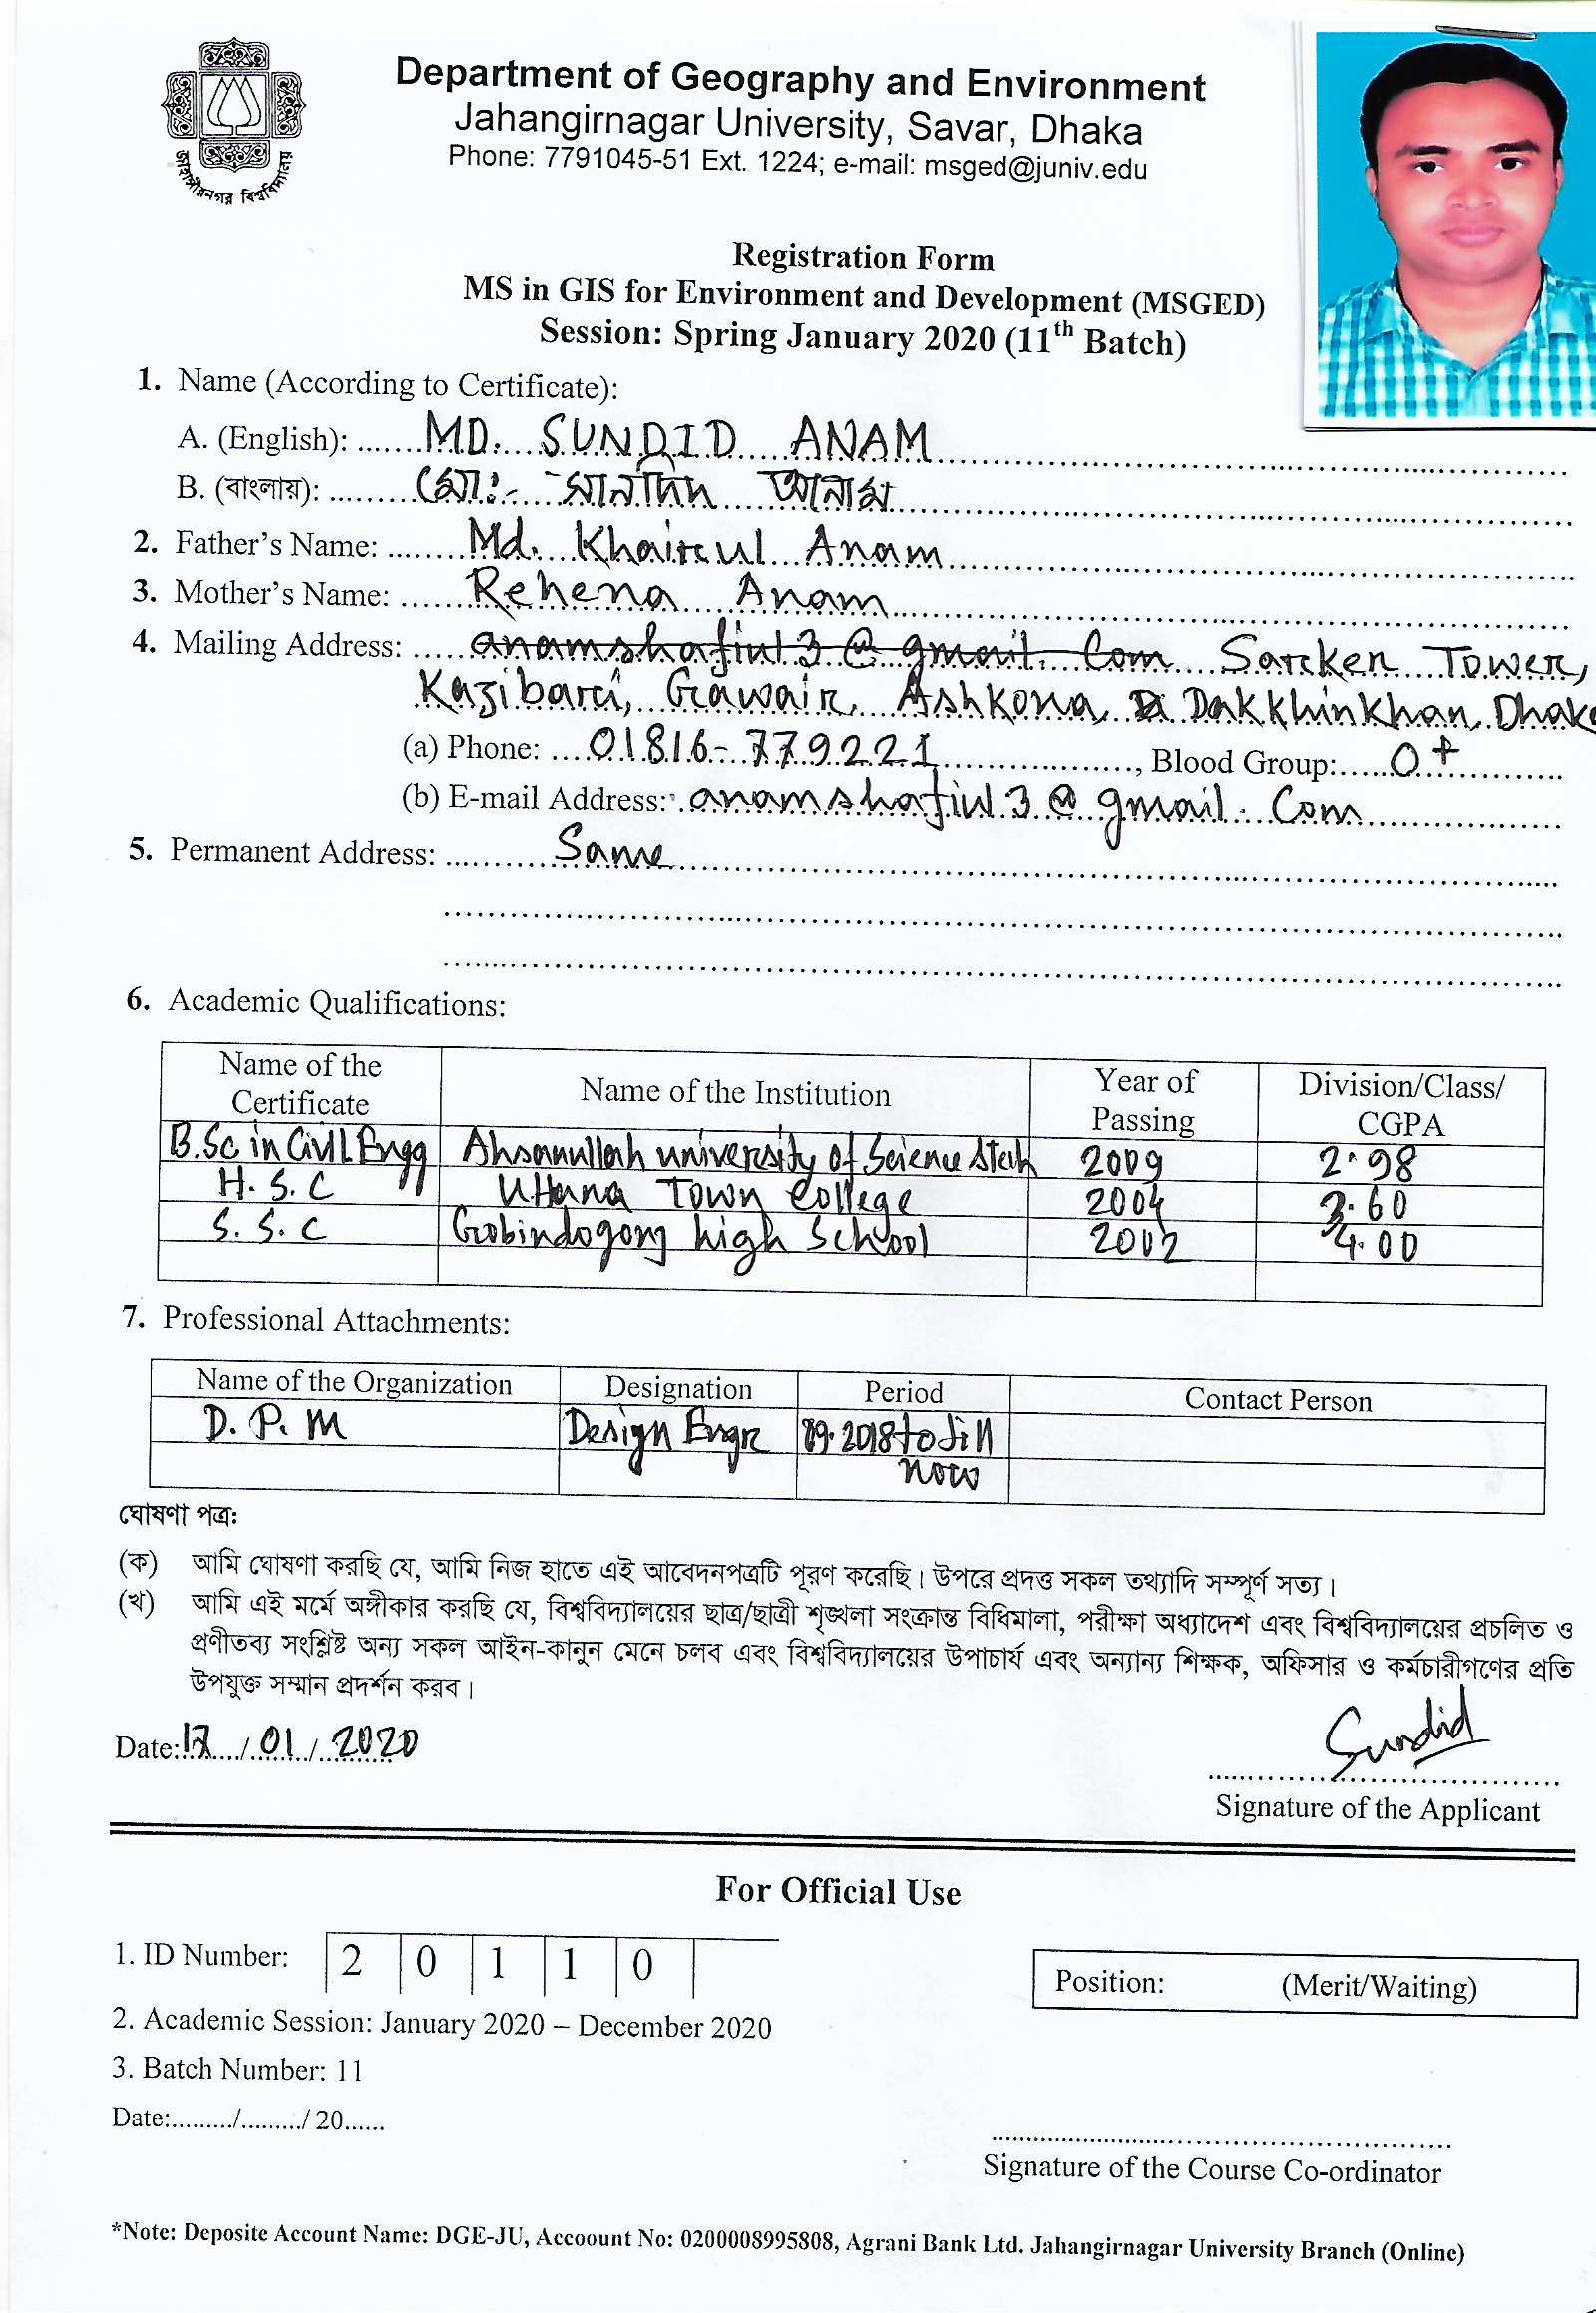 জাহাঙ্গীরনগর বিশ্ববিদ্যালয়
Department of Geography and Environment
Jahangirnagar University, Savar, Dhaka
Phone: 7791045-51 Ext. 1224; e-mail: msged@juniv.edu
Registration Form
MS in GIS for Environment and Development (MSGED)
Session: Spring January 2020 (11th Batch)
1. Name (According to Certificate):
A. (English): MD. SUNDID ANAM
B. (বাংলায়): মোঃ- সানদিদ আনাম
2. Father's Name: Md. Khairul Anam
3. Mother's Name: Rehena Anam
4. Mailing Address: anamshafiul3@gmail.com Sarker Tower,
Kazibari, Gawair, Ashkona, Dakkhinkhan, Dhaka
(a) Phone: 01816-779221, Blood Group: O+
(b) E-mail Address: anamshafiul3@gmail.com
5. Permanent Address: Same
6. Academic Qualifications:
Name of the Certificate Name of the Institution Year of Passing Division/Class/CGPA
B.Sc in Civil Engg Ahsanullah university of Science &Tech 2009 2.98
H.S.C Uttara Town College 2004 3.60
S.S.C Gobindogonj high School 2002 4.00
7. Professional Attachments:
Name of the Organization Designation Period Contact Person
D.P.M Design Engr 09.2018 to till
now
ঘোষণা পত্র:
(ক) আমি ঘোষণা করছি যে, আমি নিজ হাতে এই আবেদনপত্রটি পূরণ করেছি। উপরে প্রদত্ত সকল তথ্যাদি সম্পূর্ণ সত্য।
(খ) আমি এই মর্মে অঙ্গীকার করছি যে, বিশ্ববিদ্যালয়ের ছাত্র/ছাত্রী শৃঙ্খলা সংক্রান্ত বিধিমালা, পরীক্ষা অধ্যাদেশ এবং বিশ্ববিদ্যালয়ের প্রচলিত ও
প্রণীতব্য সংশ্লিষ্ট অন্য সকল আইন-কানুন মেনে চলব এবং বিশ্ববিদ্যালয়ের উপাচার্য এবং অন্যান্য শিক্ষক, অফিসার ও কর্মচারীগণের প্রতি
উপযুক্ত সম্মান প্রদর্শন করব।
Date: /01/2020
Sundid
Signature of the Applicant
For Official Use
1. ID Number: 2 0 1 1 0
Position: (Merit/Waiting)
2. Academic Session: January 2020 – December 2020
3. Batch Number: 11
Date:........./........./ 20......
Signature of the Course Co-ordinator
*Note: Deposite Account Name: DGE-JU, Accoount No: 0200008995808, Agrani Bank Ltd. Jahangirnagar University Branch (Online)